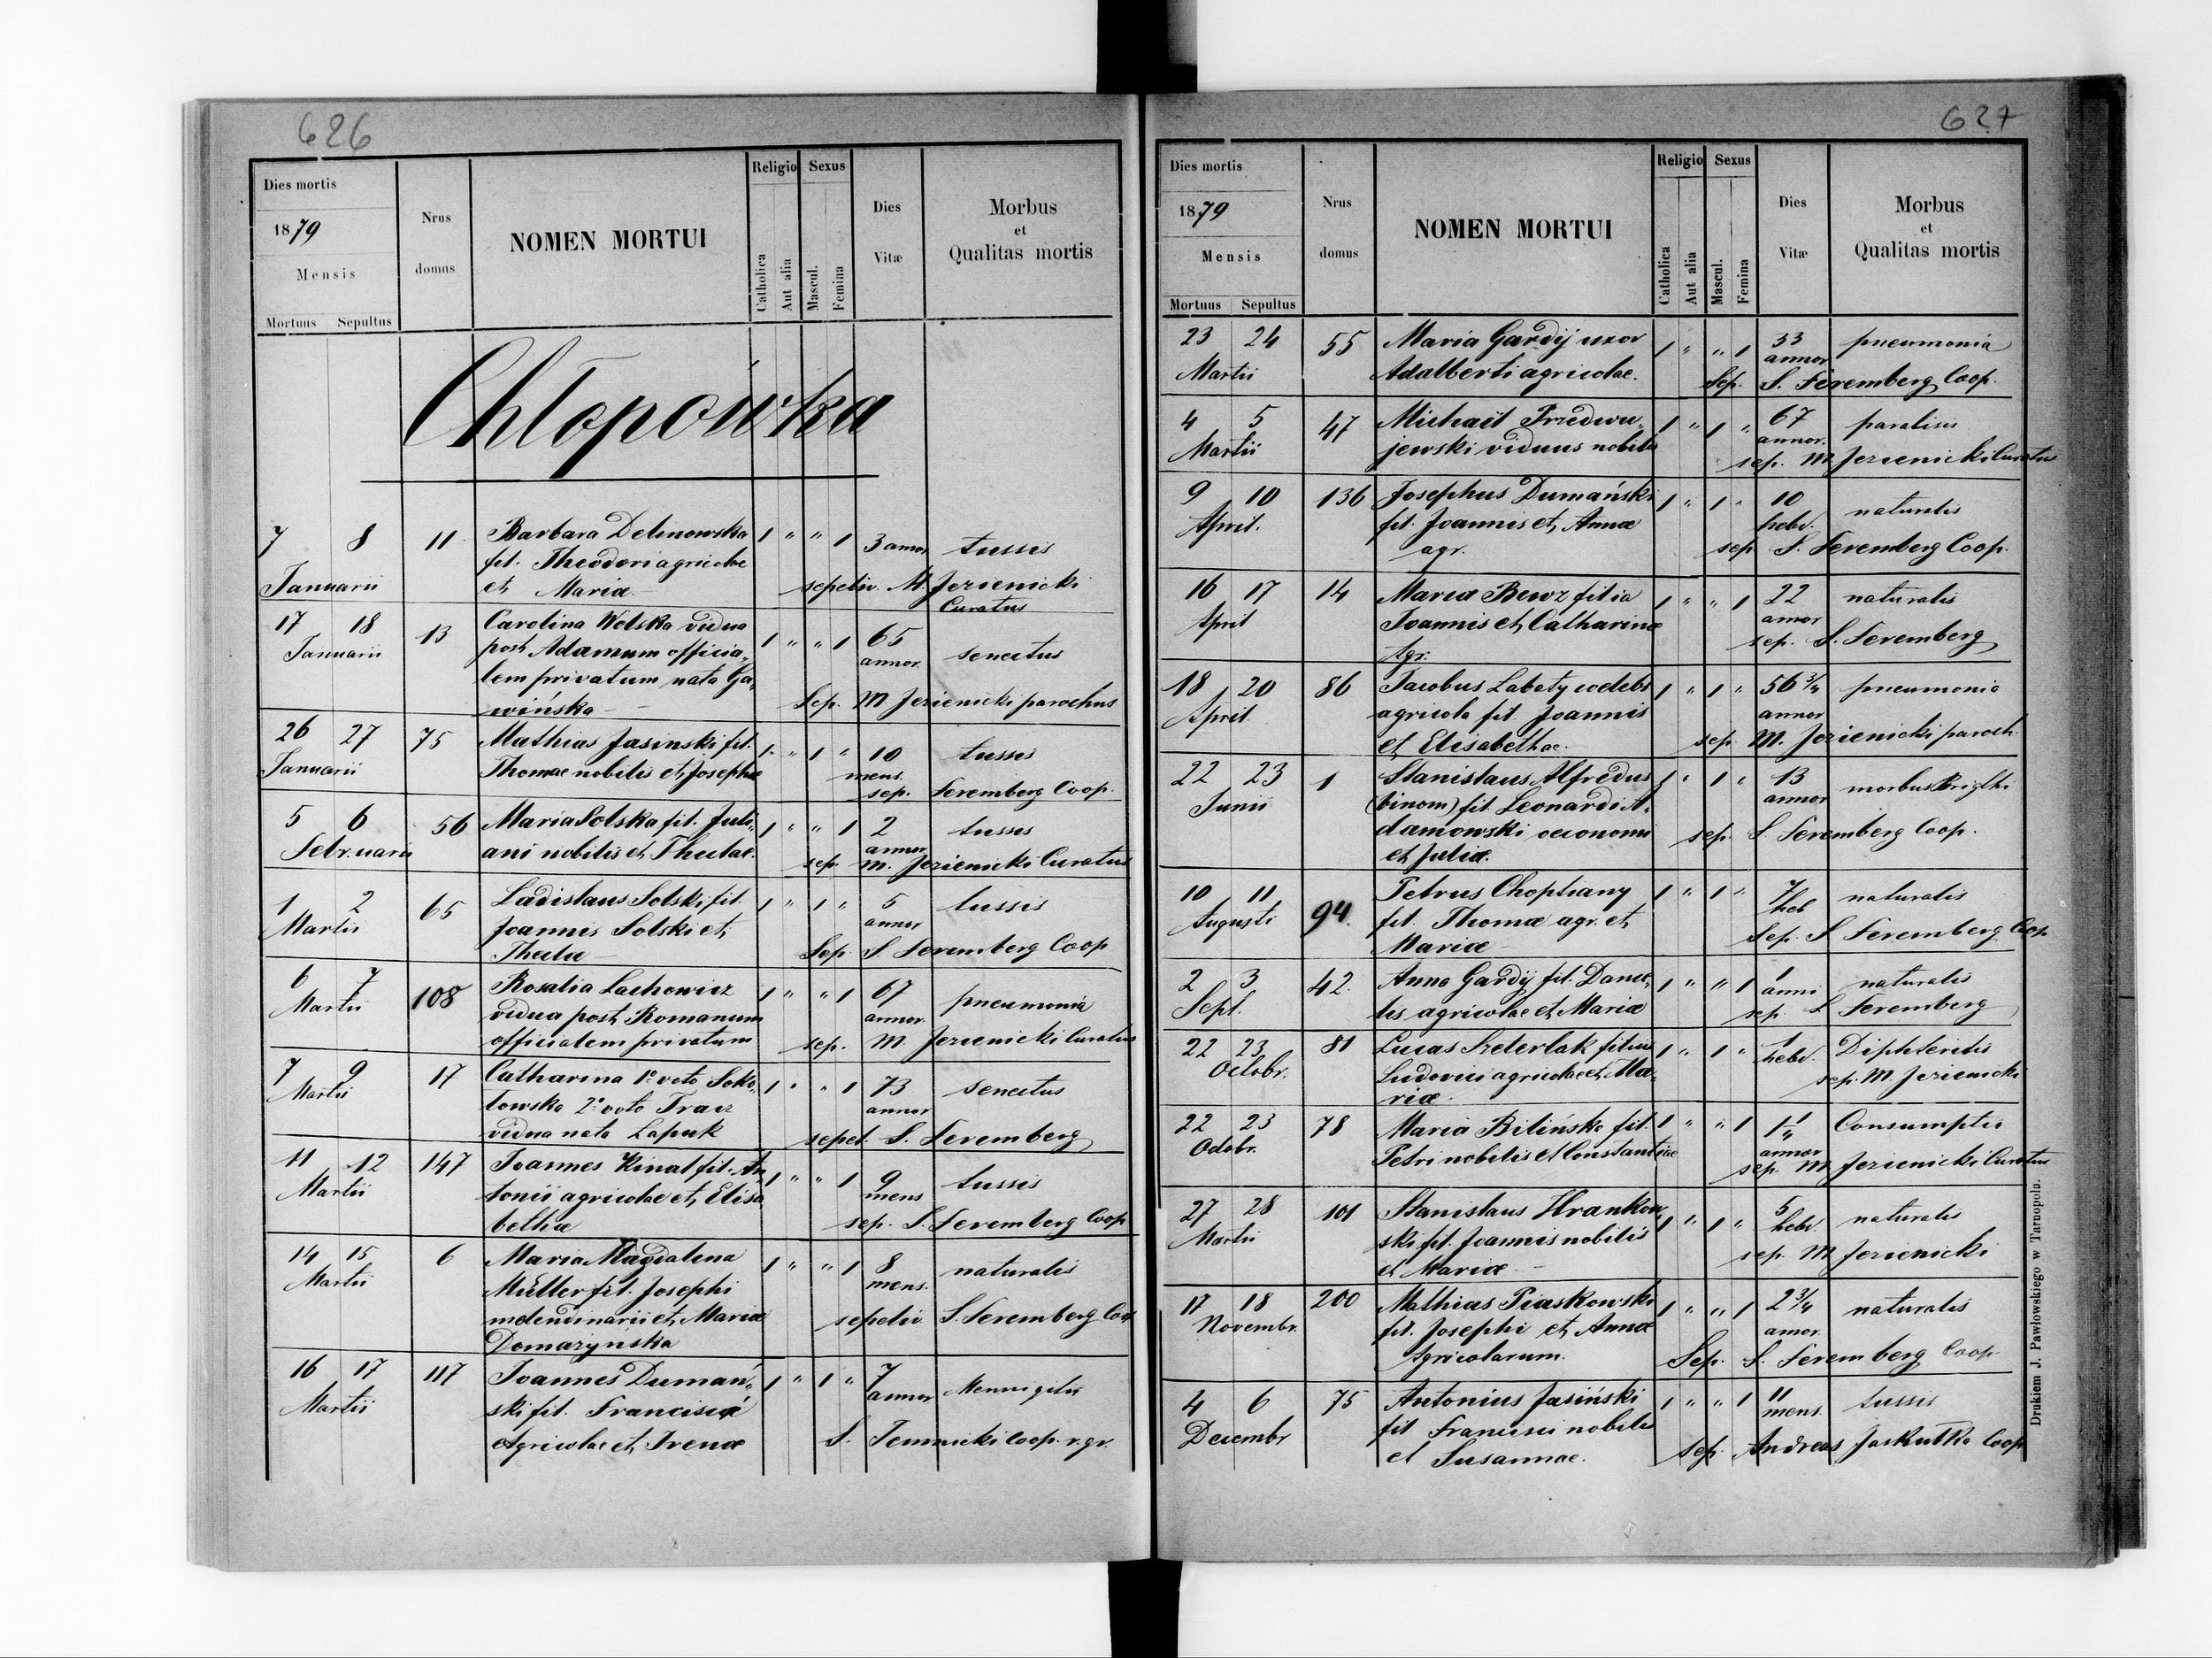 626
Dies mortis
1879
Mensis
Mortuus Sepultus
Nrus domus
NOMEN MORTUI
Religio
Catholica
Aut alia
Sexus
Mascul.
Femina
Dies Vitæ
Morbus et Qualitas mortis
Chłopówka
7 8 11 Barbara Delinowska 1 " " 1 3 annor tussis
Januarii fil. Theodori agricolae
et Mariæ sepeliv. M Jezienicki Curatus
17 18 13 Carolina Wolska vidua 1 " " 1 65 annor. senectus
Januarii post Adamum officia„
lem privatum nata Ga„
wińska Sep. M Jezienicki parochus
26 27 75 Mathias Jasinski fil. 1 " 1 " 10 mens. tussis
Januarii Thomae nobilis et Josephæ sep. Seremberg Coop.
5 6 56 Maria Solska fil. Juli„ 1 " " 1 2 annor tussis
Februarii ani nobilis et Theclae. sep. M. Jezienicki Curatus
1 2 65 Ladislaus Solski fil. 1 " 1 " 5 annor tussis
Martii Joannis Solski et
Theclæ Sep. S Seremberg Coop
6 7 108 Rosalia Lachowicz 1 " " 1 67 annor. pneumonia
Martii vidua post Romanum
officialem privatum sep. M Jezienicki Curatus
7 9 17 Catharina 1o voto Soko„ 1 " " 1 73 annor senectus
Martii lowska 2o voto Tracz
vidua nata Lapuk sepel. S. Seremberg
11 12 147 Joannes Kinal fil. An„ 1 " " 1 9 mens tussis
Martii tonii agricolae et Elisa
bethæ sep. S. Seremberg Coop
14 15 6 Maria Magdalena 1 " " 1 8 mens. naturalis
Martii Müller fil. Josephi
molendinarii et Mariæ sepeliv S. Seremberg Coop
Domazyńska
16 17 117 Joannes Dumań„ 1 " 1 " 7 annor
Martii ski fil. Francisci
Agricolae et Irenæ S. Temnicki Coop. r. gr.
627
Dies mortis
1879
Mensis
Mortuus Sepultus
Nrus domus
NOMEN MORTUI
Religio
Catholica
Aut alia
Sexus
Mascul.
Femina
Dies Vitæ
Morbus et Qualitas mortis
23 24 55 Maria Gardÿ uxor 1 " " 1 33 annor pneumonia
Martii Adalberti agricolae. Sep. S. Seremberg Coop.
4 5 47 Michaël Przedwu„ 1 " 1 " 67 annor. paralisis
Martii jewski viduus nobilis sep. M Jezienicki Curatus
9 10 136 Josephus Dumański 1 " 1 " 10 hebd. naturalis
April. fil. Joannis et Annæ
agr. sep. S. Seremberg Coop.
16 17 14 Maria Bewz filia 1 " " 1 22 annor naturalis
April Joannis et Catharinæ sep. S. Seremberg
Agr.
18 20 86 Jacobus Labaty coelebs 1 " 1 " 56 3/4 annor pneumonia
April agricola fil. Joannis
et Elisabethae. sep. M. Jezienicki paroch.
22 23 1 Stanislaus Alfredus 1 " 1 " 13 annor morbus Brigthi
Junii (binom) fil. Leonardi A„
damowski oeconomi sep. S. Seremberg Coop.
et Juliæ.
10 11 94. Petrus Choptiany 1 " 1 " 7 heb naturalis
Augusti fil. Thomæ agr. et
Mariæ Sep. S Seremberg Coop
2 3 42. Anna Gardÿ fil. Danie„ 1 " " 1 1 anni naturalis
Sept. lis agricolae et Mariæ sep. S Seremberg
22 23 81 Lucas Szeterlak filius 1 " 1 " 1 hebd. Diphteritis
Octobr. Ludovici agricolae et Ma„ sep. M. Jezienicki
riæ.
22 23 78 Maria Bilińska fil. 1 " " 1 annor Consumptio
Octobr. Petri nobilis et Constantiae sep. M Jezienicki Curatus
27 28 101 Stanislaus Hrankow„ 1 " 1 " 5 hebd. naturalis
Martii ski fil. Joannis nobilis
et Mariæ sep. M Jezienicki
17 18 200 Mathias Piaskowski 1 " " 1 2 3/4 annor. naturalis
Novembr. fil. Josephi et Annæ
Agricolarum. Sep. S. Seremberg Coop
4 6 75 Antonius Jasiński 1 " " 1 11 mens. tussis
Decembr fil Francisci nobilis
et Susannae. sep. Andreas Jaskułka Coop
Drukiem J. Pawłowskiego w Tarnopolu.